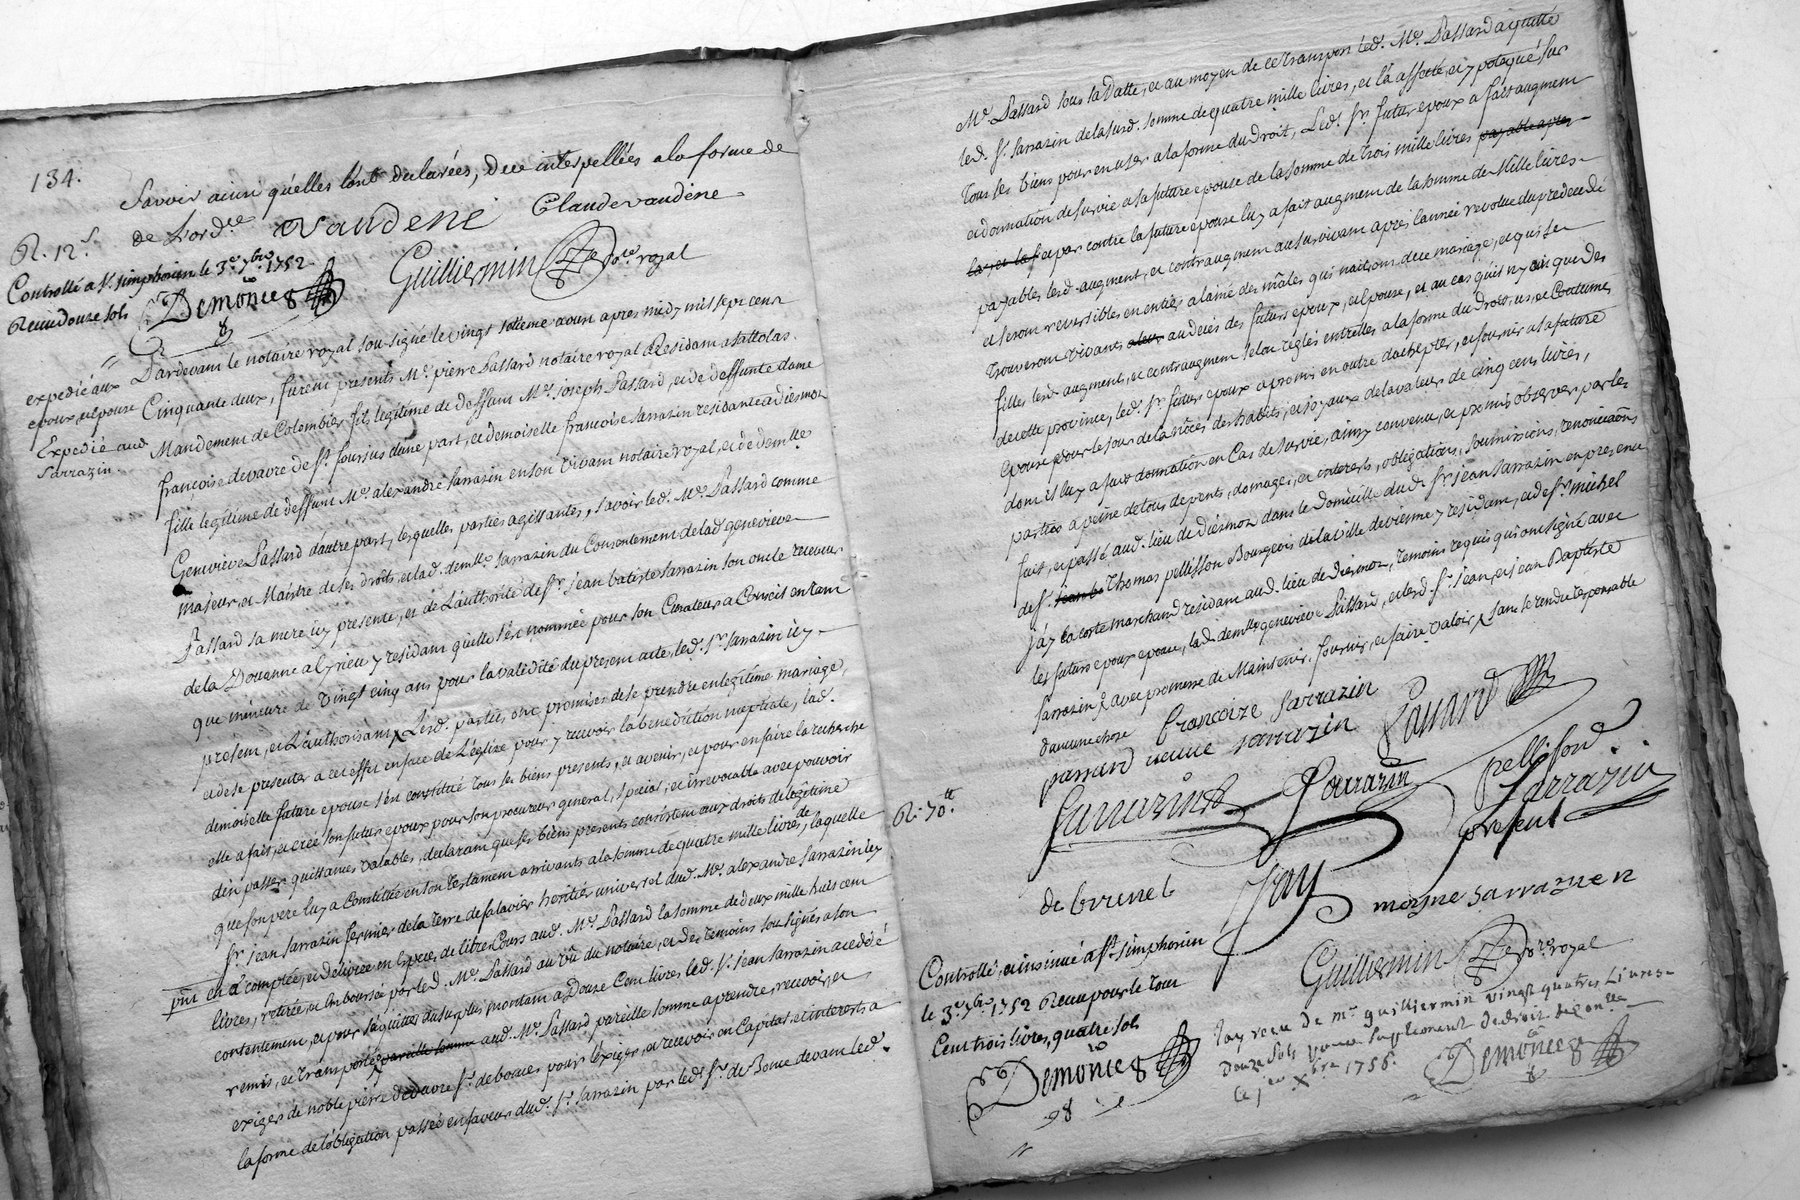 134.
Savoir ainsi quelles l'ont declarées, de ce interpellées a la forme de
de l'ordce Vaudené Claude vaudene
R. 12s.
Guilliermin nore royal
Controllé a St. simphorien le 3e. 7bre. 1752
Receu douze sols Demonceø
expedié aux
epoux, et epouse
Expedié aud.
Sarrazin.
Pardevant le notaire royal sousigné le vingt sixième aoust apres midy mil sept cent
Cinquante deux, furent presents Me. pierre Passard notaire royal Residant a
Mandement de Colombier fils legitime de deffunt Me. joseph Passard, et de deffunte dame
françoise devavre de St. forjus d'une part, et demoiselle françoise Sarrazin residante a diemoz
fille legitime de deffunt Me. alexandre Sarrazin en son vivant notaire royal, et de demlle
Genevieve Passard d'autre part, lesquelles parties agissantes, savoir led. Me. Passard comme
majeur, et Maistre de ses droits, et lad. demlle. Sarrazin du Consentement de lad. genevieve
Passard sa mere icy presente, et de L'authorité de sr. jean batiste Sarrazin son oncle receveur
de la Douanne a y residant qu'elle s'est nommée pour son Curateur a Conseil en tant
que mineure de vingt cinq ans pour la validité du present acte, led. sr. Sarrazin icy
present, et L'authorisant x Lesd. parties, ont promises de se prendre en legitime mariage,
et de se presenter a cet effet en face de L'église pour y recevoir la benediction nuptiale, lad.
demoiselle future epouse s'est constitué tous ses biens presents, et avenir, et pour en faire la recherche
elle a fait, et creé son futur epoux pour son procureur general, special, et irrevocable avec pouvoir
d'en passer quittances valables, declarant que ses biens presents consistent aux droits de legitime
que son pere luy a Constituée en son testament arrivants a la somme de quatre mille livres, de laquelle
sr. jean Sarrazin fermier de la terre de falavier heritier universel dud. Me. alexandre Sarrazin icy
pnt en a comptée, et delivrée en Especes de libre Cours aud. Me. Passard la somme de deux mille huit cent
livres, retirée, et Emboursée par led. Me. Passard au vû du notaire, et des temoins sou signés a son
contentement, et pour s'aquitter du surplus montant a Douze Cent livres led. sr. jean Sarrazin a cedé
remis, et transporté pareille somme aud. Me. Passard pareille somme a prendre, recevoir, et
exiger de noble pierre devavre sr. de bonces pour l'exiger, et recevoir en Capital et interests a
la forme de l'obligation passée en faveur dud. sr. Sarrazin par led. sr. de Bonce devant led.
Me. Passard sous sa datte, et au moyen de ce transport led. Me. Passard a quitté
led. sr. Sarrazin de la sud. somme de quatre mille livres, et l'a assotté, et ypotequé sur
tous ses biens pour en user a la forme du droit, Led. sr. futur epoux a fait augment
et donnation de survie a la future epouse de la somme de trois mille livres payable apres
et par contre la future epouse luy a fait augment de la somme de Mille livres
payables, lesd. augment, et contraugment au survivant apres l'année revolue du predecedé
et seront reversibles en entier a l'ainé des mâles qui naitront de ce mariage, et qui se
trouveront vivants au deces des futurs epoux, et epouse, et au cas qu'il n'y ait que des
filles lesd. augment, et contraugment selon reglés entr'elles a la forme du Droit, us, et Coutumes
de cette province, led. sr. futur epoux a promis en outre d'achepter, et fournir a sa future
epouse pour le jour de la nôces des habits, et joyaux de la valeur de cinq cent livres,
dont il luy a fait donnation en Cas de survie, ainsy convenu, et promis observer par les
parties a peine de tous depents, domages, et interests, obligations, soumissions, renonciations
fait, et passé aud. lieu de diemoz dans le Domicille dud. sr. jean Sarrazin en presence
de sr. Thomas pellisson Bourgeois de la ville de vienne y residant, et de sr. michel
jay marchand residant aud. lieu de diemoz, temoins requis qui ont signé avec
les futurs epoux epouse, lad. demlle. genevieve Passard, et lesd. sr. jean, et jean Baptiste
Sarrazin x avec promesse de Maintenir, fournir, et faire valoir x sans se rendre responsable
d'aucune chose
françoize Sarrazin
Passard
passard veuve sarrazin
pellisson
Sarrazin
Sarrazin
Sarrazin
present
R. 70tt
de brunet
Jay
moyne sarrazien
Guilliermin nore royal
Controllé, et insinué a St. simphorien
le 3e. 7bre. 1752 Receu pour le tout
Cent trois livres, quatre sols
Demonceø
98
jay receu de mr. guilliermin vingt quatres livres
douze sols pour supplement de droit
ce jer Xbre 1756.
Demonceø